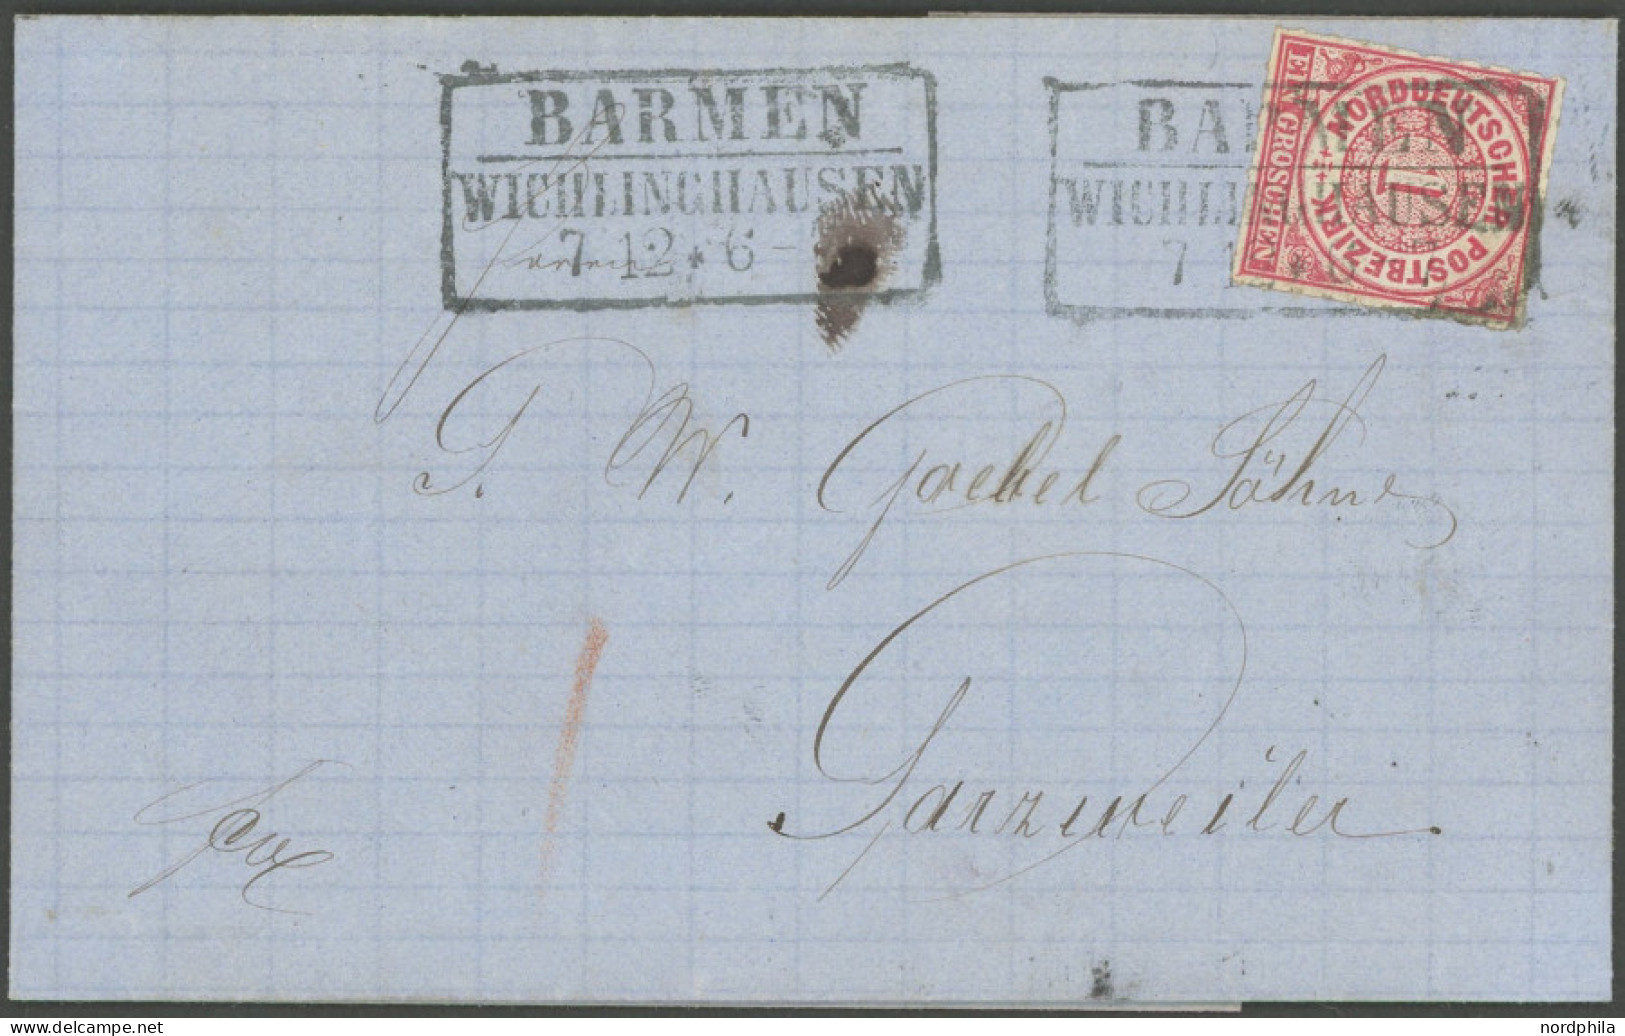 BARMEN
WICHLINGHAUSEN
7 12 * 6 -
BARMEN
WICHLINGHAUSEN
7 12 * 6 - 7
NORDDEUTSCHER POSTBEZIRK
EIN GROSCHEN
1
franco
J. W. Goebel Söhne
Garzweiler.
1
nordphila